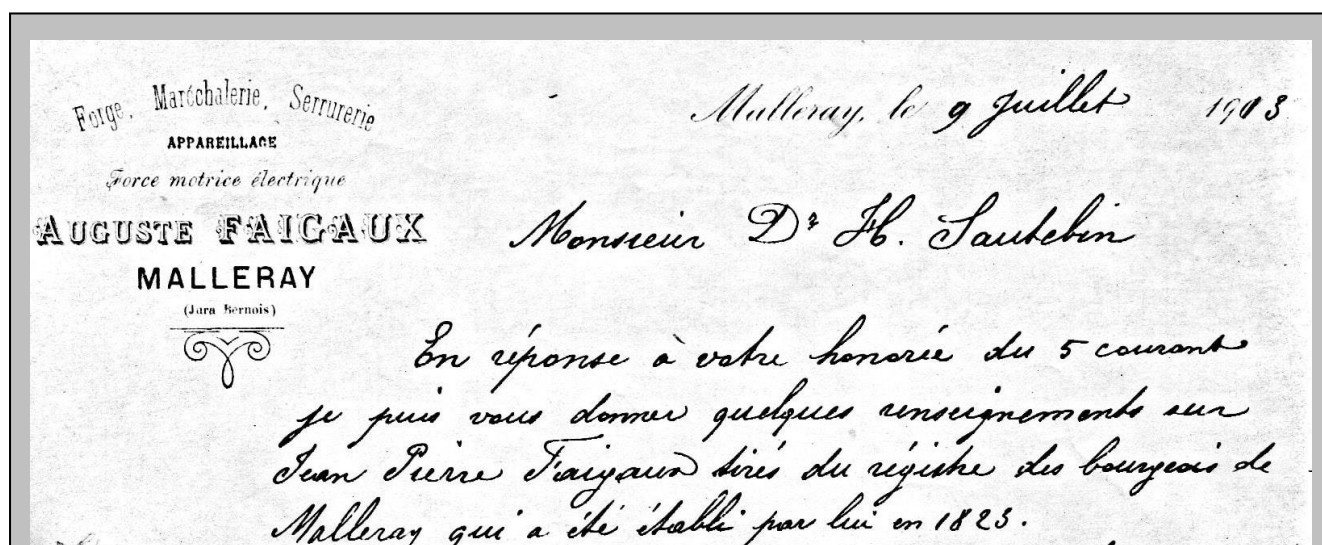 Forge, Maréchalerie, Serrurerie
APPAREILLAGE
Force motrice électrique
AUGUSTE FAIGAUX
MALLERAY
(Jura Bernois)
Malleray, le 9 juillet 1903
Monsieur Dr H. Sautebin
En réponse à votre honorée du 5 courant
je puis vous donner quelques renseignements sur
Jean Pierre Faigaux tirés du régistre des bourgeois de
Malleray qui a été établi par lui en 1823.